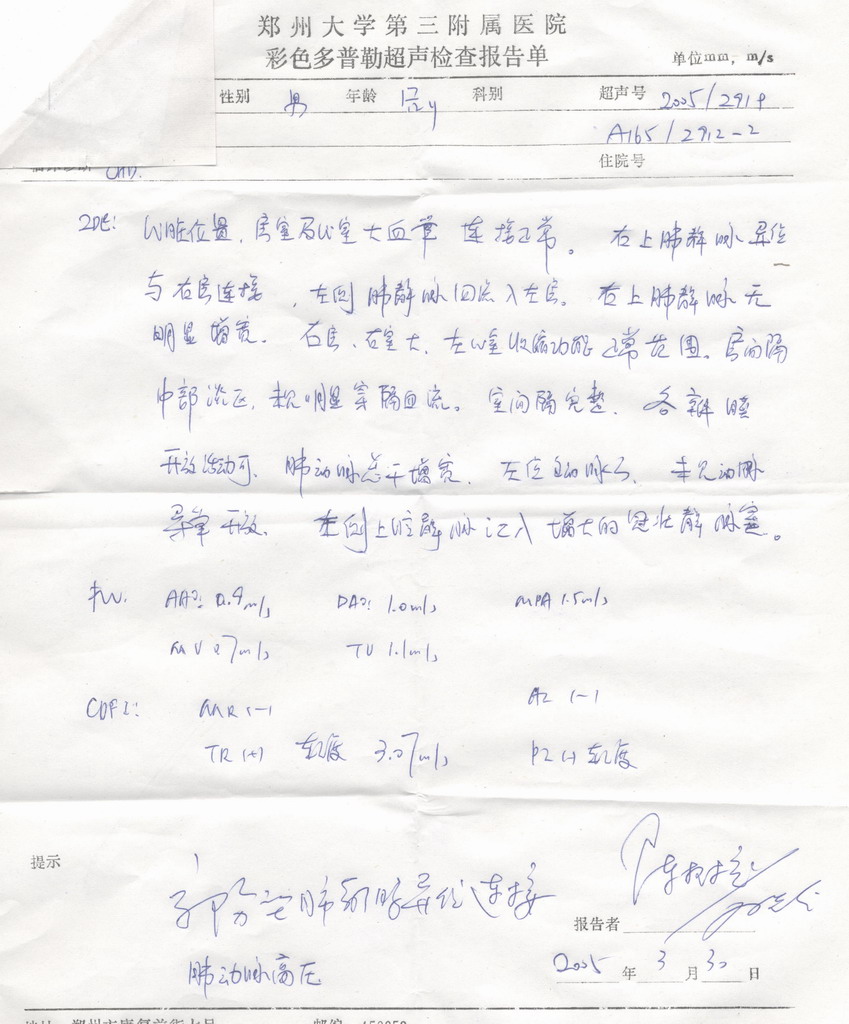 郑州大学第三附属医院
彩色多普勒超声检查报告单 单位mm, m/s
性别 男 年龄 科别 超声号 2005/2919
A165/2912-2
住院号
CHD.
2DE: 心脏位置,房室及心室大血管连接正常。右上肺静脉异位
与右房连接,左侧肺静脉回流入左房。右上肺静脉无
明显增宽。右房、右室大,左心室收缩功能正常范围。房间隔
中部 未见明显穿隔血流。室间隔完整。各瓣膜
开放活动可。肺动脉总干增宽。左位主动脉弓,未见动脉
导管开放。左侧上腔静脉汇入增大的冠状静脉窦。
PW: AAO: 0.9m/s DAO: 1.0m/s MPA 1.5m/s
MV 0.7m/s TV 1.1m/s
CDFI: MR (-) AR (-)
TR (+) 轻度 3.07m/s PR (+) 轻度
提示 部分型肺静脉异位连接
肺动脉高压
报告者
2005 年 3 月 30 日